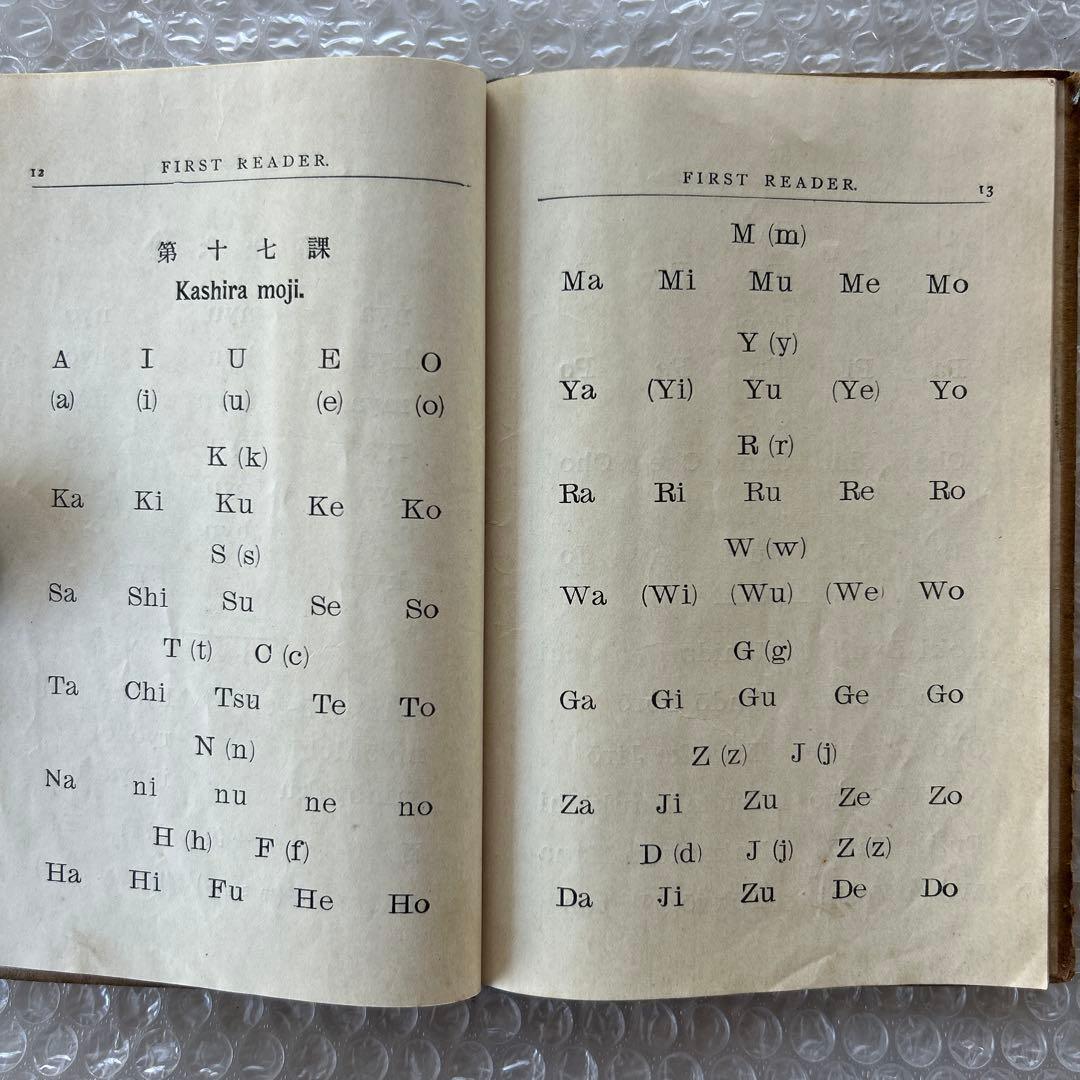 12 FIRST READER.
第十七課
Kashira moji.
A I U E O
(a) (i) (u) (e) (o)
K (k)
Ka Ki Ku Ke Ko
S (s)
Sa Shi Su Se So
T (t) C (c)
Ta Chi Tsu Te To
N (n)
Na ni nu ne no
H (h) F (f)
Ha Hi Fu He Ho
FIRST READER. 13
M (m)
Ma Mi Mu Me Mo
Y (y)
Ya (Yi) Yu (Ye) Yo
R (r)
Ra Ri Ru Re Ro
W (w)
Wa (Wi) (Wu) (We) Wo
G (g)
Ga Gi Gu Ge Go
Z (z) J (j)
Za Ji Zu Ze Zo
D (d) J (j) Z (z)
Da Ji Zu De Do